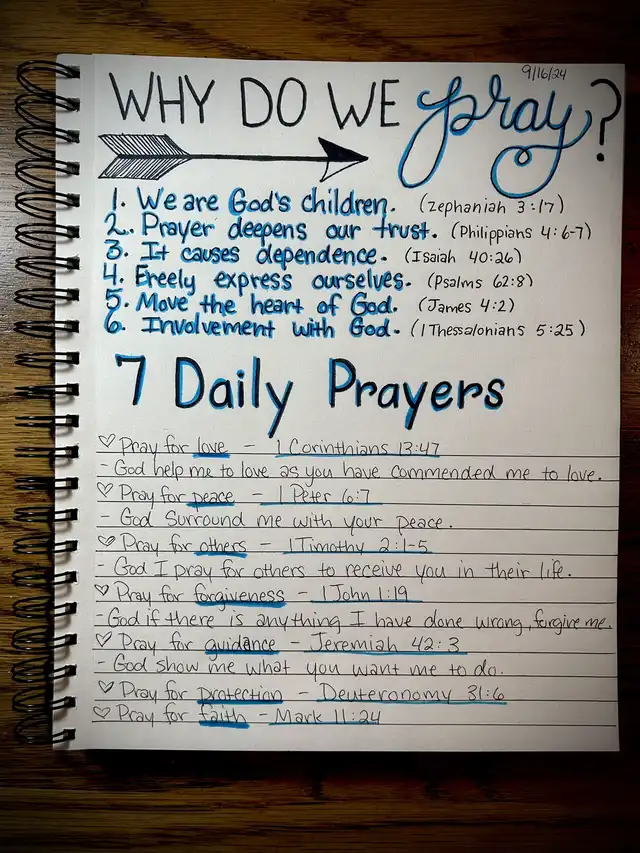 9/16/24
WHY DO WE pray?
1. We are God's children. (Zephaniah 3:17)
2. Prayer deepens our trust. (Philippians 4:6-7)
3. It causes dependence. (Isaiah 40:26)
4. Freely express ourselves. (Psalms 62:8)
5. Move the heart of God. (James 4:2)
6. Involvement with God. (1 Thessalonians 5:25)
7 Daily Prayers
♡ Pray for love - 1 Corinthians 13:47
- God help me to love as you have commended me to love.
♡ Pray for peace - 1 Peter 6:7
- God Surround me with your peace.
♡ Pray for others - 1 Timothy 2:1-5
- God I pray for others to receive you in their life.
♡ Pray for forgiveness - 1 John 1:19
- God if there is anything I have done wrong, forgive me.
♡ Pray for guidance - Jeremiah 42:3
- God show me what you want me to do.
♡ Pray for protection - Deuteronomy 31:6
♡ Pray for faith - Mark 11:24